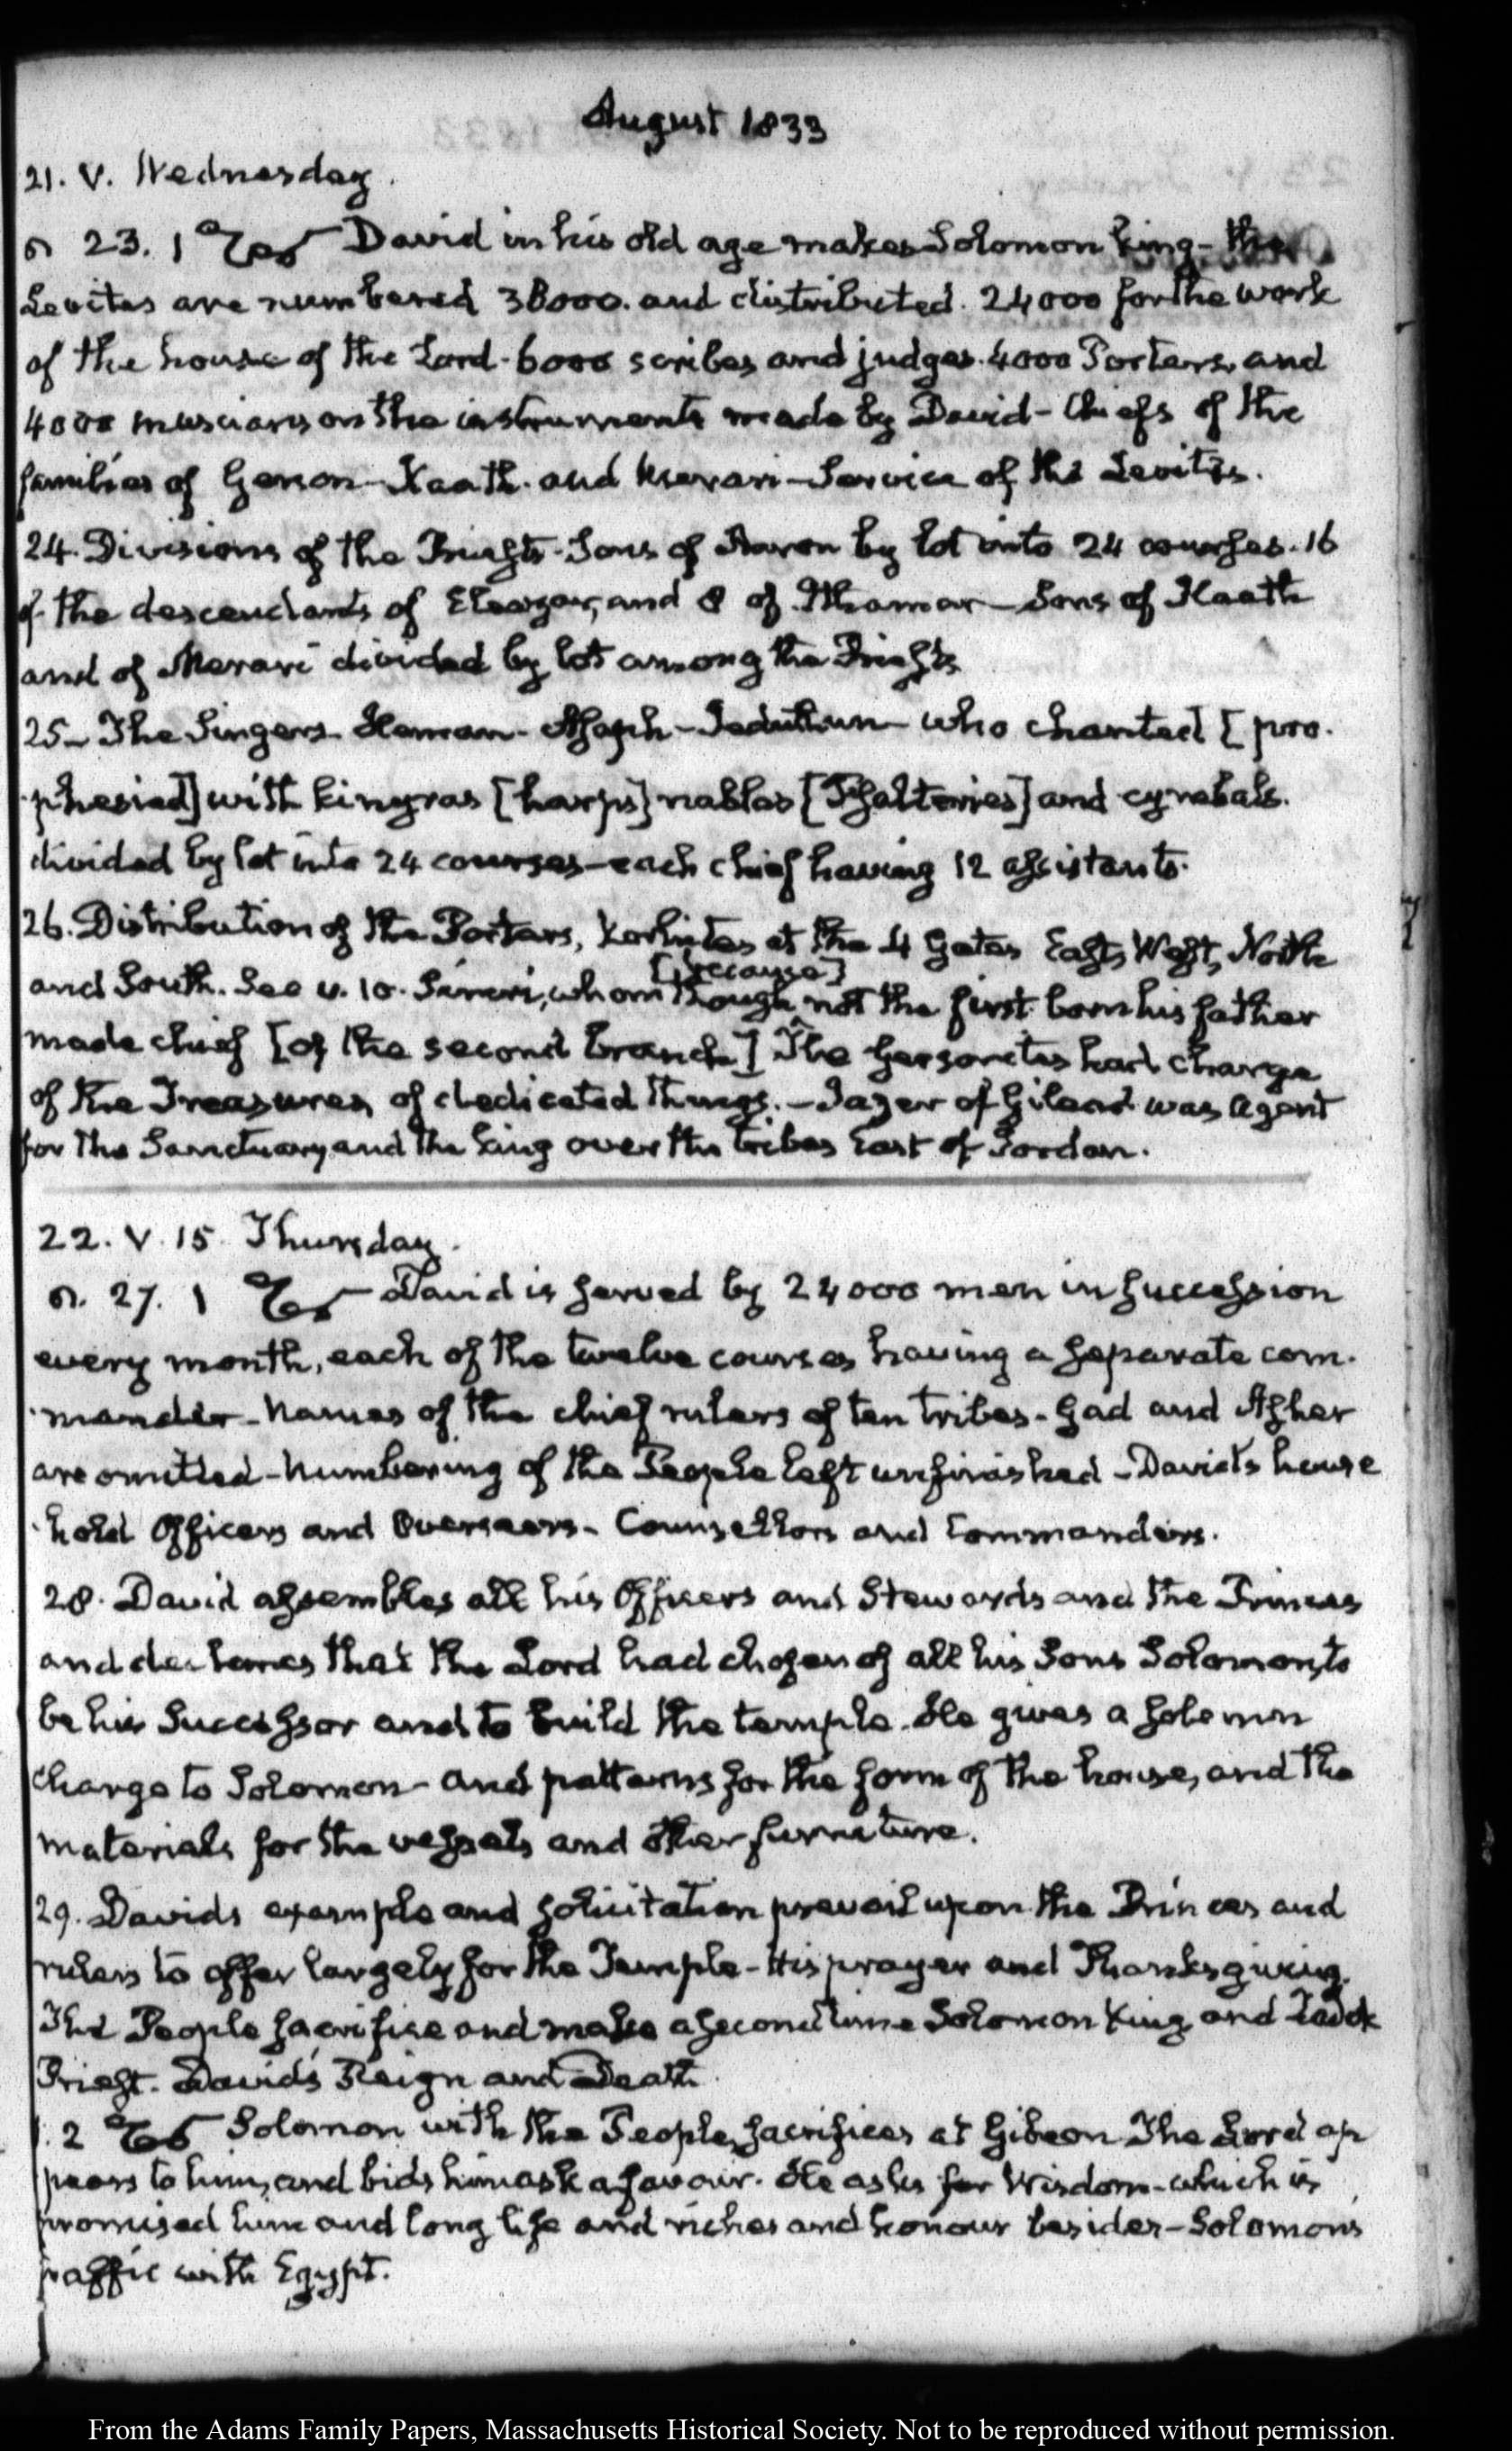 August 1833
21. V. Wednesday.
23. 1 David in his old age makes Solomon king - the
Levites are numbered 38000. and distributed. 24000 for the work
of the house of the Lord - 6000 scribes and judges. 4000 Porters, and
4000 musicians on the instruments made by David - Chiefs of the
families of Gerson - Kaath. and Merari - Service of the Levites.
24. Divisions of the Priests - Sons of Aaron by lot into 24 courses. 16
of the descendants of Eleazar, and 8 of Ithamar - Sons of Kaath
and of Merari divided by lot among the Priests
25 - The Singers - Heman - Asaph - Jeduthun - who chanted [pro-
-phesied] with kinyras [harps] nablas [Psalteries] and cymbals.
divided by lot into 24 courses - each chief having 12 assistants.
26. Distribution of the Porters, Korhites at the 4 Gates East, West, North
[because]
and South. See v. 10. Simri, whom though not the first born his father
made chief [of the second branch] The Gersonites had charge
of the Treasures of dedicated things. - Jazer of Gilead was Agent
for the Sanctuary and the King over the tribes East of Jordan.
22. V. 15. Thursday.
27. 1 David is served by 24000 men in succession
every month, each of the twelve courses having a separate com-
-mander - Names of the chief rulers of ten tribes - Gad and Asher
are omitted - Numbering of the People left unfinished - David's house
-hold Officers and Overseers - Counsellors and Commanders.
28. David assembles all his Officers and Stewards and the Princes
and declares that the Lord had chosen of all his Sons Solomon, to
be his Successor and to build the temple. He gives a solemn
charge to Solomon - and patterns for the form of the house, and the
materials for the vessels and other furniture.
29. Davids example and solicitation prevail upon the Princes and
rulers to offer largely for the Temple - His prayer and Thanksgiving.
The People sacrifise and make a second time Solomon King and Zadok
Priest. David's Reign and Death.
1. 2 Solomon with the People, sacrifices at Gibeon The Lord ap
pears to him, and bids him ask a favour. He asks for Wisdom - which is
promised him and long life and riches and honour besides - Solomon's
traffic with Egypt.
From the Adams Family Papers, Massachusetts Historical Society. Not to be reproduced without permission.